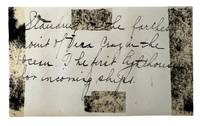 Standing on the farthest
point of Vera Cruz in the
ocean. The first lighthouse
for incoming ships.